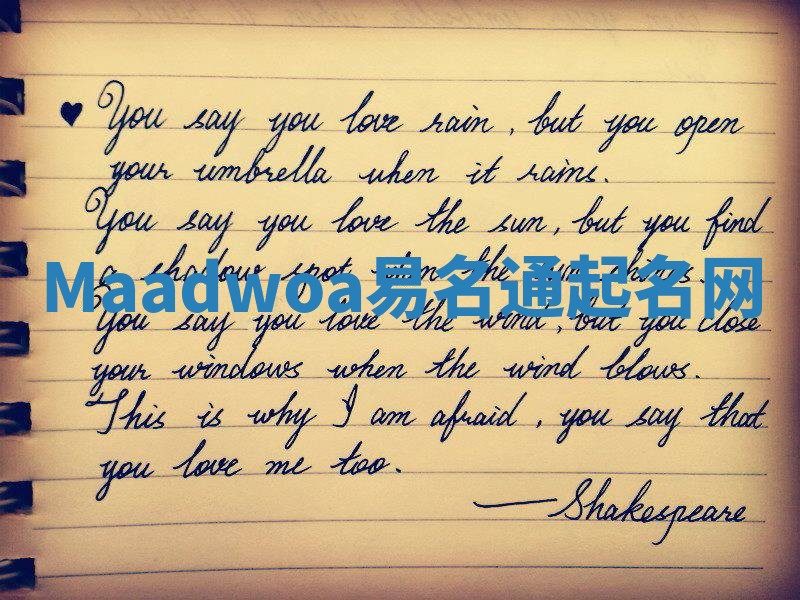 You say you love rain, but you open
your umbrella when it rains.
You say you love the sun, but you find
a shadow spot when the sun shines.
Maadwoa易名通起名网
You say you love the wind, but you close
your windows when the wind blows.
This is why I am afraid, you say that
you love me too.
—Shakespeare